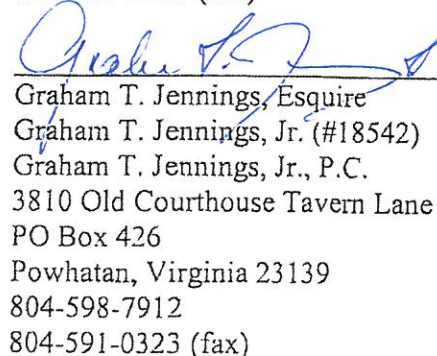 Graham T. Jennings, Esquire
Graham T. Jennings, Jr. (#18542)
Graham T. Jennings, Jr., P.C.
3810 Old Courthouse Tavern Lane
PO Box 426
Powhatan, Virginia 23139
804-598-7912
804-591-0323 (fax)